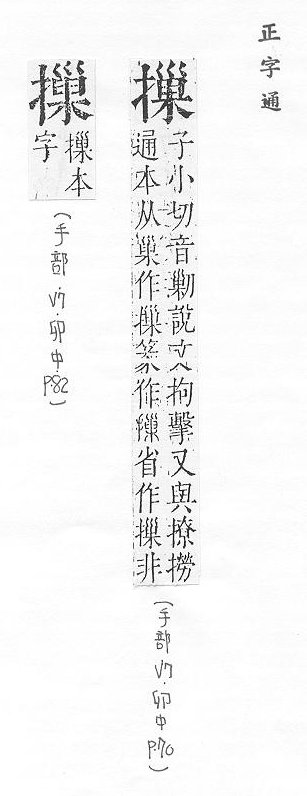 正字通
摷
子小切音勦說文拘擊又與撩撈
通本从巢作摷篆作摷省作摷非
(手部.V7.卯中P.70)
摷
摷本
字
(手部.V7.卯中P.82)